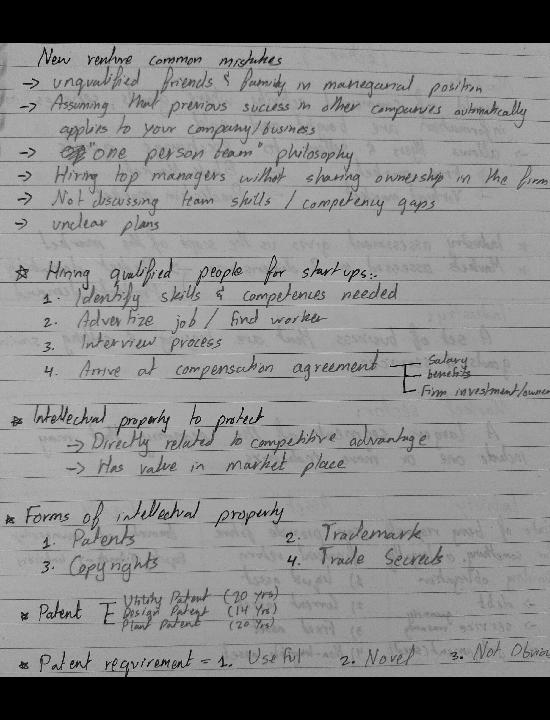 New venture common mistakes
-> unqualified friends & family in managarial position
-> Assuming that previous success in other companies automatically
applies to your company/business
-> "one person team" philosophy
-> Hiring top managers without sharing ownership in the firm
-> Not discussing team skills / competency gaps
-> unclear plans
* Hiring qualified people for startups:-
1. Identify skills & competences needed
2. Advertize job / find worker
3. Interview process
4. Arrive at compensation agreement
Salary
benefits
Firm investment/owner
* Intellectual property to protect
-> Directly related to competitive advantage
-> Has value in market place
* Forms of intellectual property
1. Patents 2. Trademark
3. Copyrights 4. Trade Secrets
* Patent
Utility Patent (20 Yrs)
Design Patent (14 Yrs)
Plant Patent (20 Yrs)
* Patent requirement = 1. Useful 2. Novel 3. Not Obviou